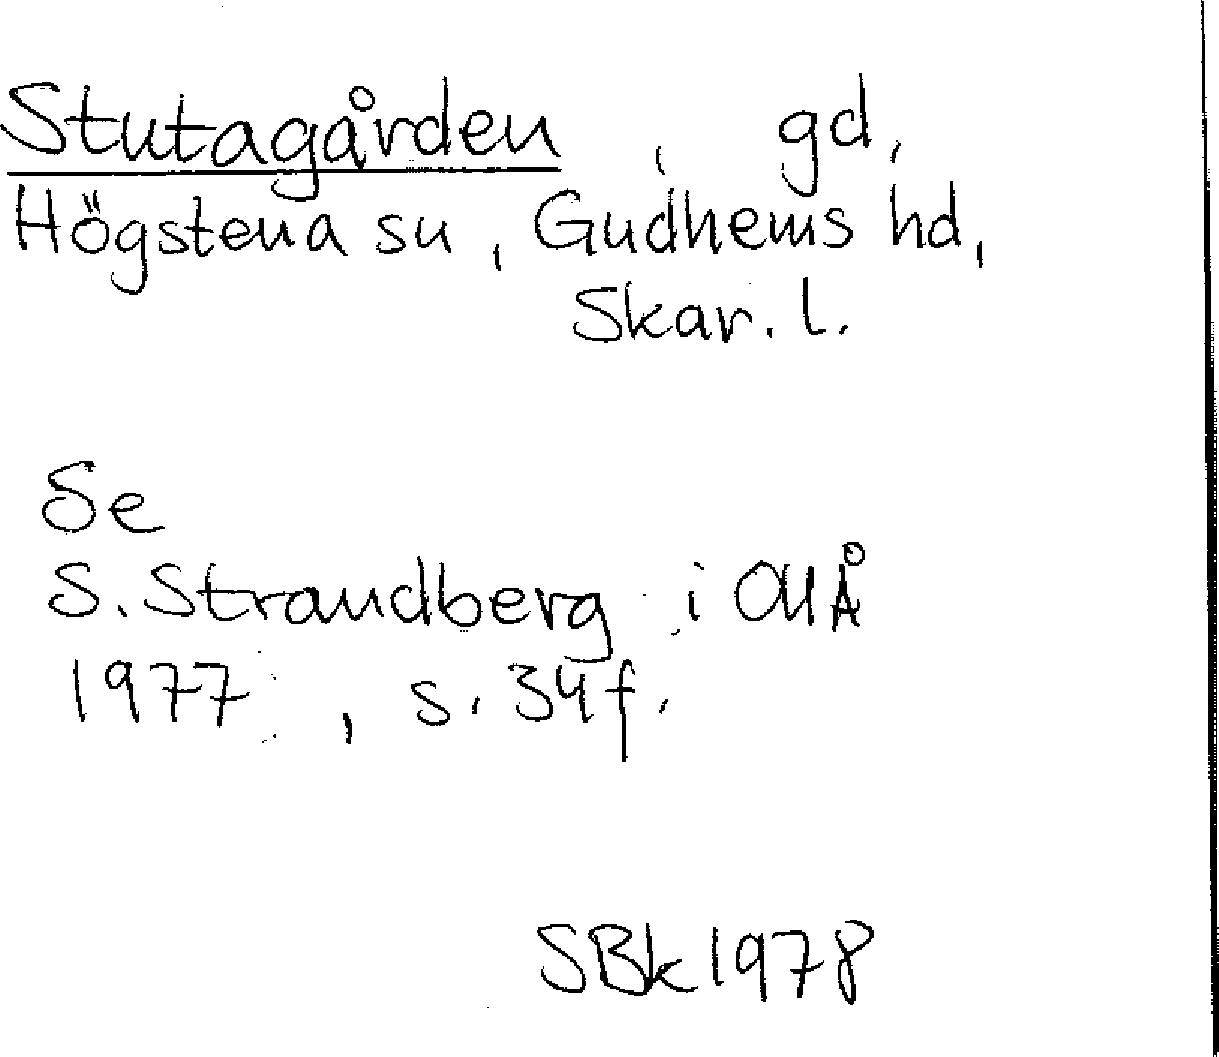 Stutagården, gd,
Högstena sn, Gudhems hd,
Skar. l.
Se
S. Strandberg i OUÅ
1977, s. 34 f.
SBk 1978